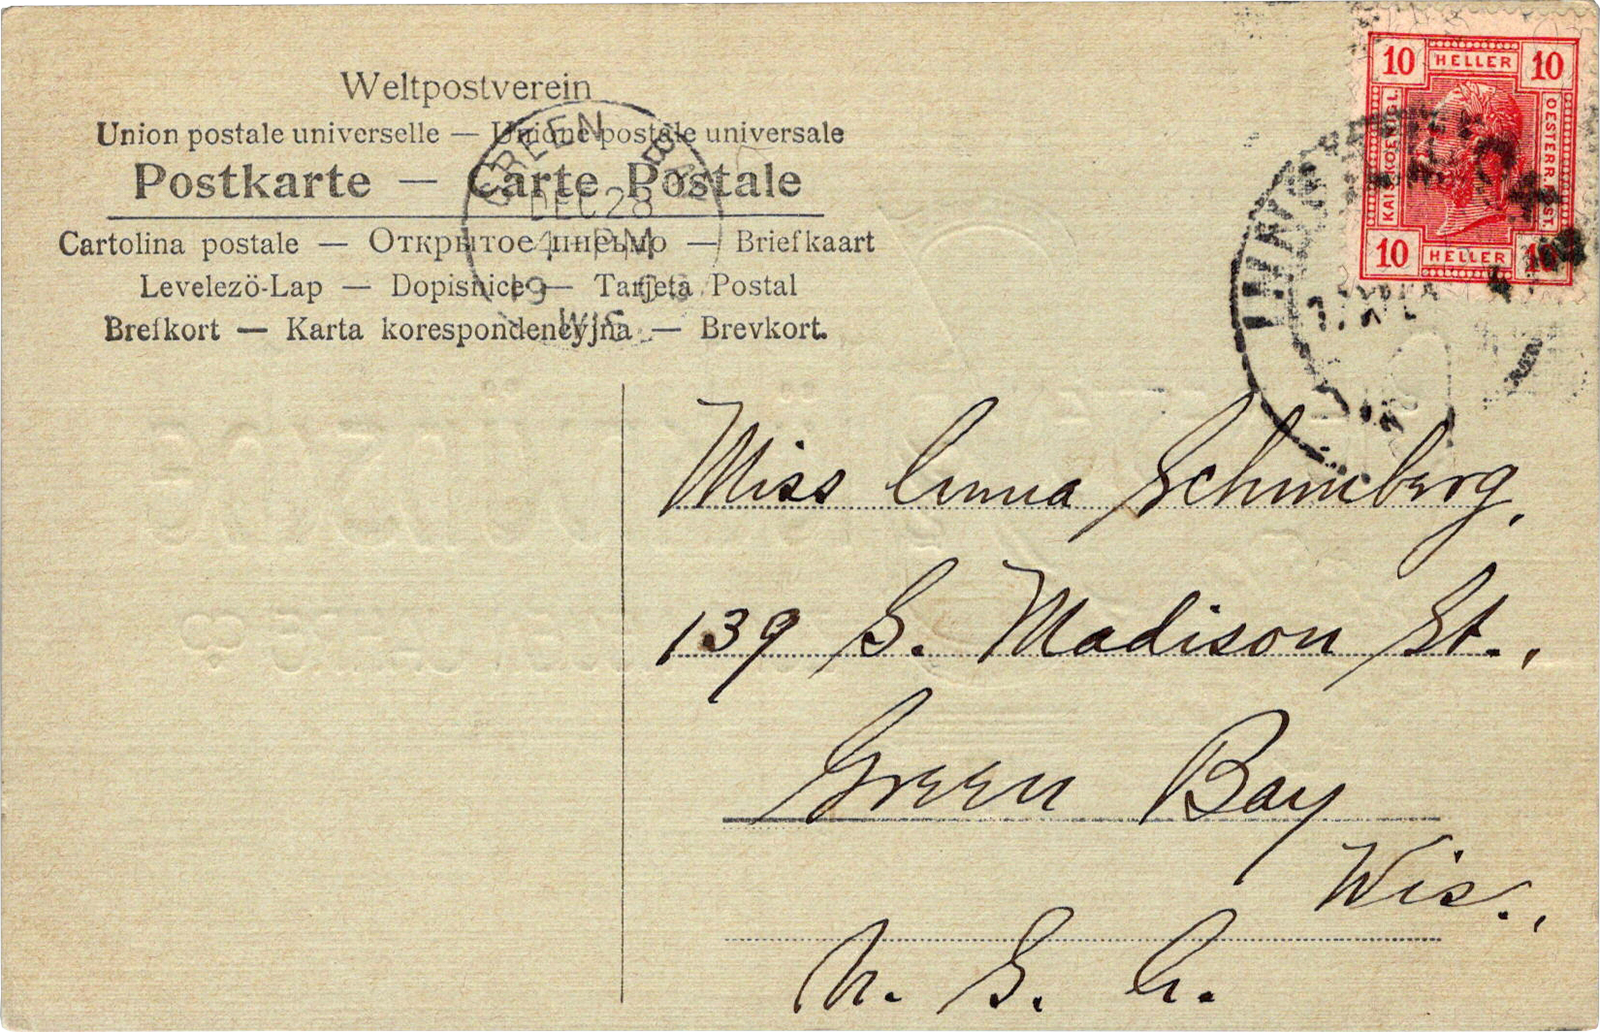 Weltpostverein
Union postale universelle — Unione postale universale
Postkarte — Carte Postale
Cartolina postale — Открытое письмо — Briefkaart
Levelezö-Lap — Dopisnice — Tarjeta Postal
Brefkort — Karta korespondencyjna — Brevkort.
GREEN BAY
DEC 28
4 PM
19
WIS.
10 HELLER 10
KAIS. KOENIGL.
OESTERR. POST.
10 HELLER 10
Miss Anna Schumberg,
139 S. Madison St.,
Green Bay
Wis.,
U. S. A.